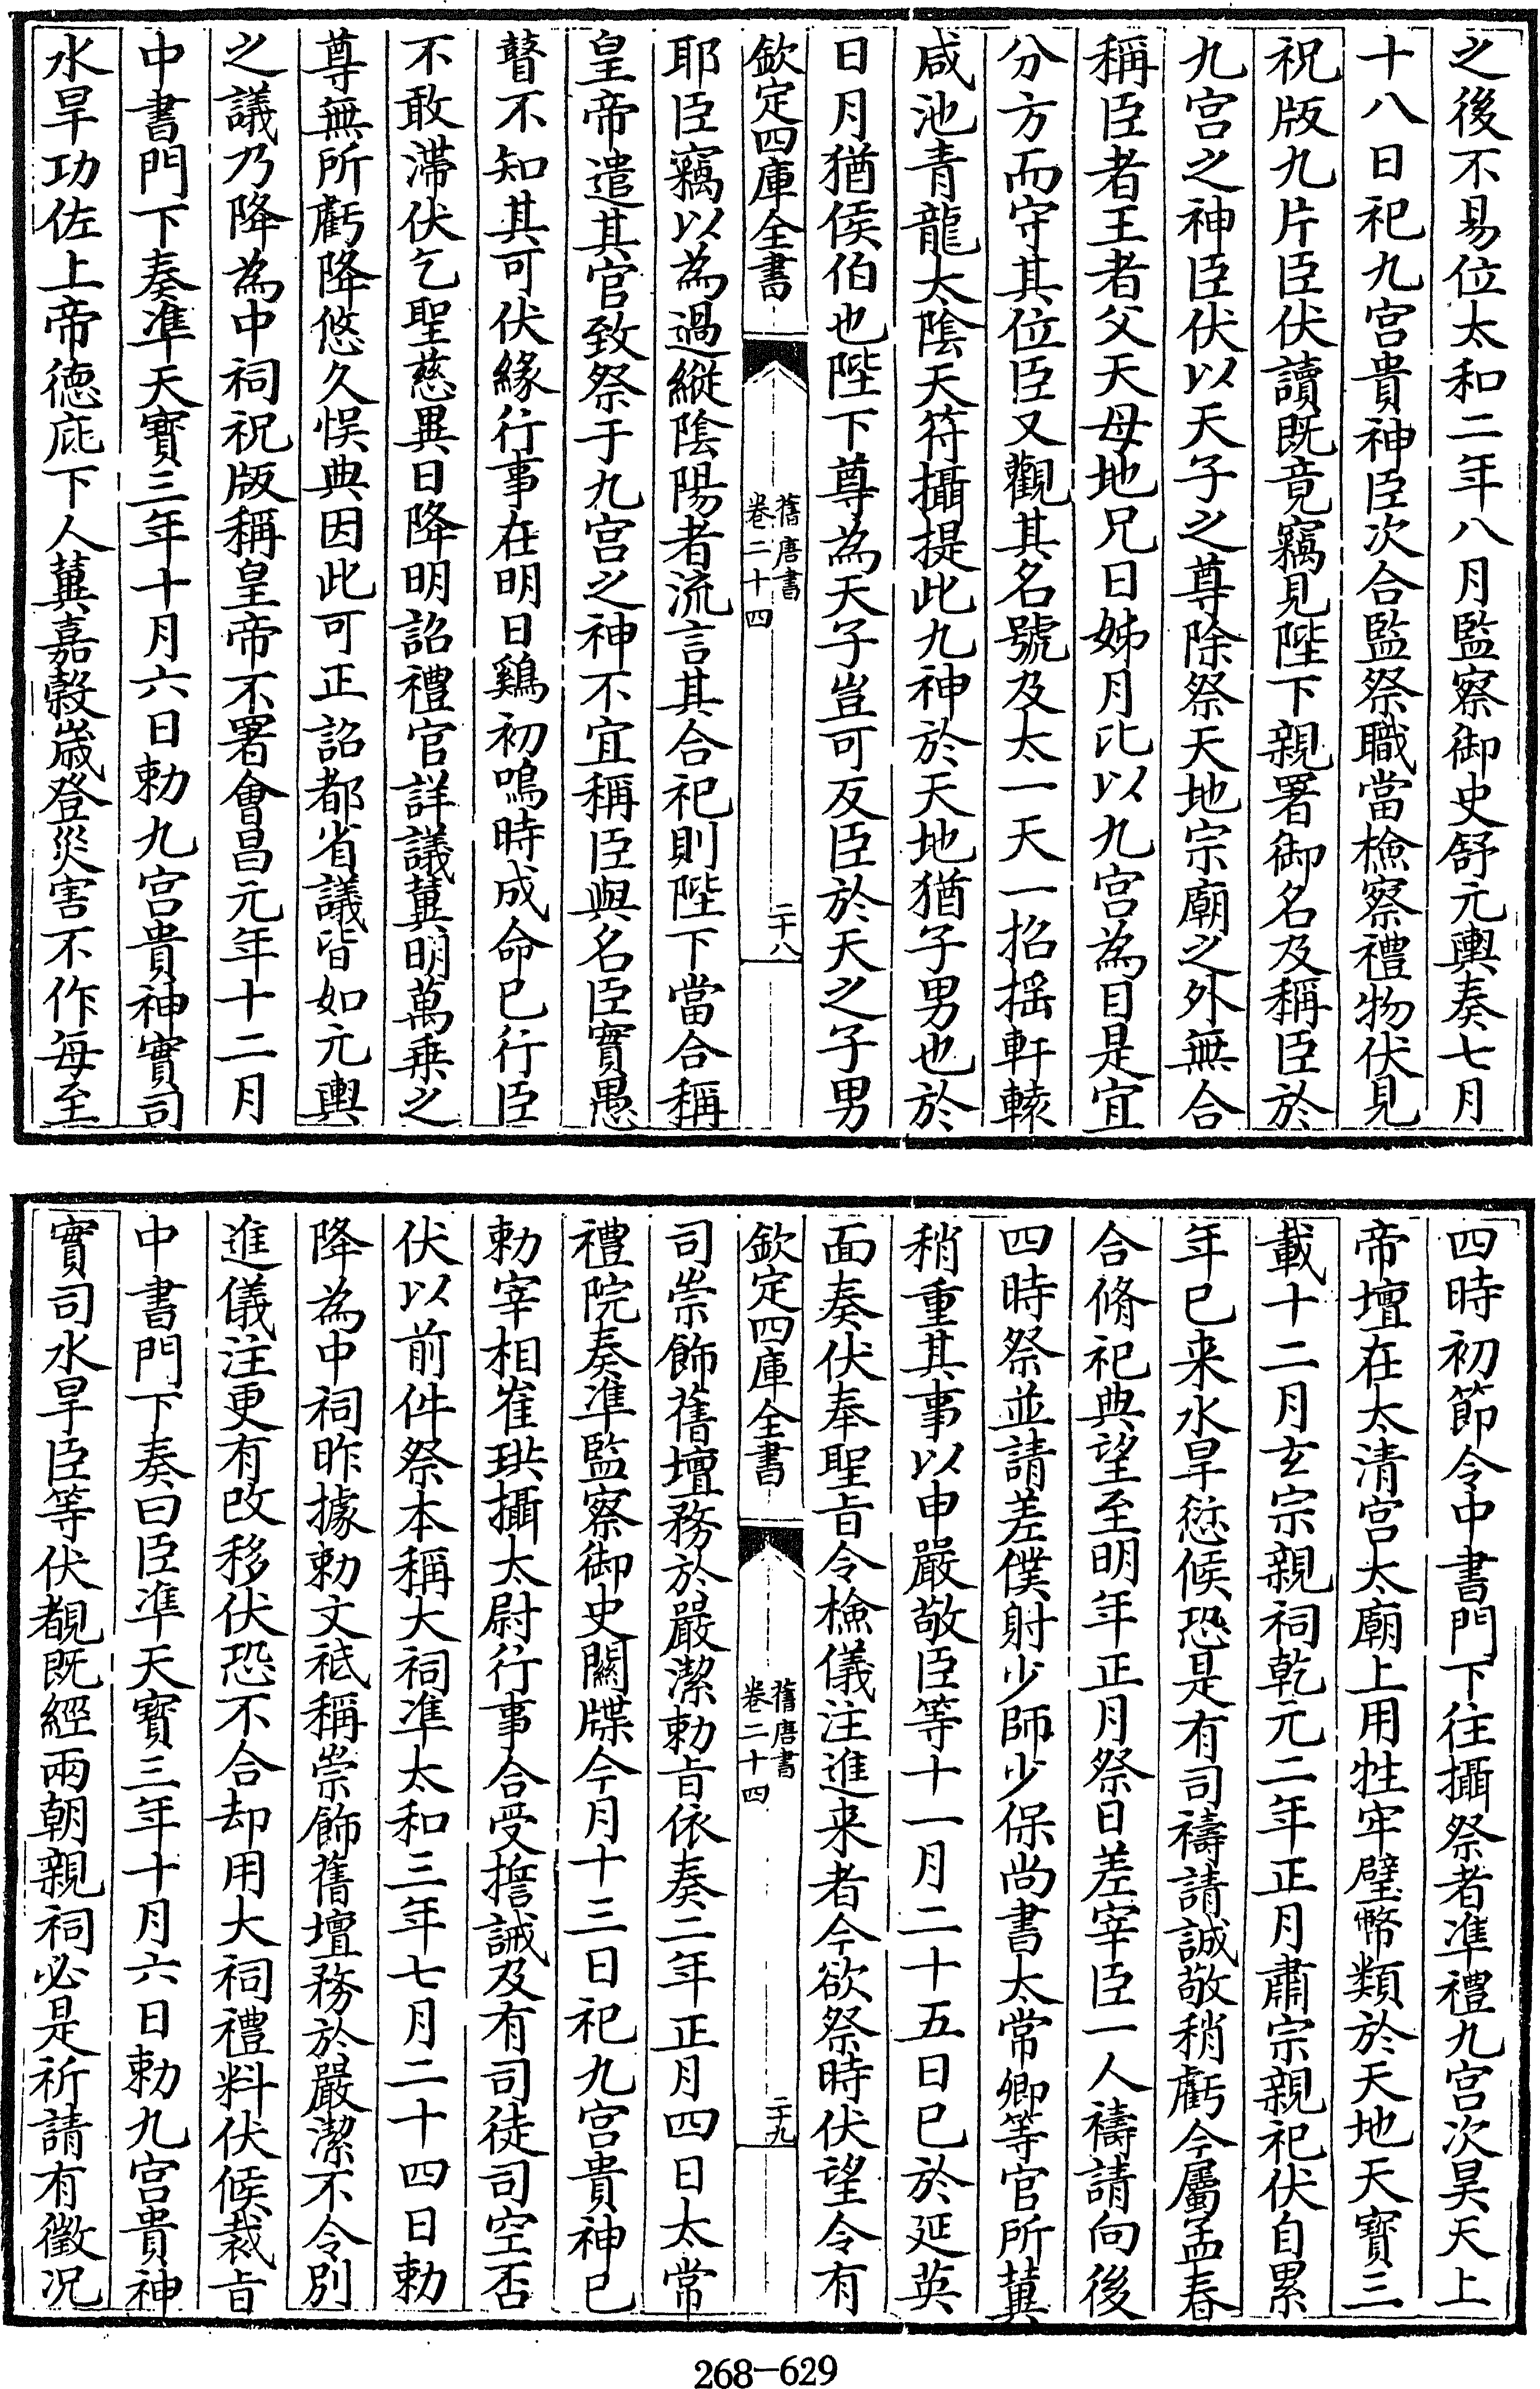 之後不易位太和二年八月監察御史舒元輿奏七月
十八日祀九宫貴神臣次合監祭職當檢察禮物伏見
祝版九片臣伏讀既竟竊見陛下親署御名及稱臣於
九宫之神臣伏以天子之尊除祭天地宗廟之外無合
稱臣者王者父天母地兄日姊月比以九宫為目是宜
分方而守其位臣又觀其名號及太一天一招摇軒轅
咸池青龍太隂天符攝提此九神於天地猶子男也於
日月猶侯伯也陛下尊為天子豈可反臣於天之子男
欽定四庫全書
舊唐書
卷二十四
二十八
耶臣竊以為過縱隂陽者流言其合祀則陛下當合稱
皇帝遣其官致祭于九宫之神不宜稱臣與名臣實愚
瞽不知其可伏緣行事在明日鷄初鳴時成命已行臣
不敢滯伏乞聖慈異日降明詔禮官詳議冀明萬乗之
尊無所虧降悠久悞典因此可正詔都省議皆如元輿
之議乃降為中祠祝版稱皇帝不署會昌元年十二月
中書門下奏準天寳三年十月六日勅九宫貴神實司
水旱功佐上帝德庇下人冀嘉榖歲登災害不作每至
四時初節令中書門下往攝祭者準禮九宫次昊天上
帝壇在太清宫太廟上用牲牢璧幣類於天地天寳三
載十二月玄宗親祠乾元二年正月肅宗親祀伏自累
年已来水旱愆候恐是有司禱請誠敬稍虧今屬孟春
合脩祀典望至明年正月祭日差宰臣一人禱請向後
四時祭並請差僕射少師少保尚書太常卿等官所冀
稍重其事以申嚴敬臣等十一月二十五日已於延英
面奏伏奉聖旨令檢儀注進来者今欲祭時伏望令有
欽定四庫全書
舊唐書
卷二十四
二十九
司崇飾舊壇務於嚴潔勅旨依奏二年正月四日太常
禮院奏準監察御史關牒今月十三日祀九宫貴神已
勅宰相崔珙攝太尉行事合受誓誡及有司徒司空否
伏以前件祭本稱大祠準太和三年七月二十四日勅
降為中祠昨據勅文祗稱崇飾舊壇務於嚴潔不令别
進儀注更有改移伏恐不合却用大祠禮料伏候裁旨
中書門下奏曰臣準天寳三年十月六日勅九宫貴神
實司水旱臣等伏覩既經兩朝親祠必是祈請有徵况
268-629